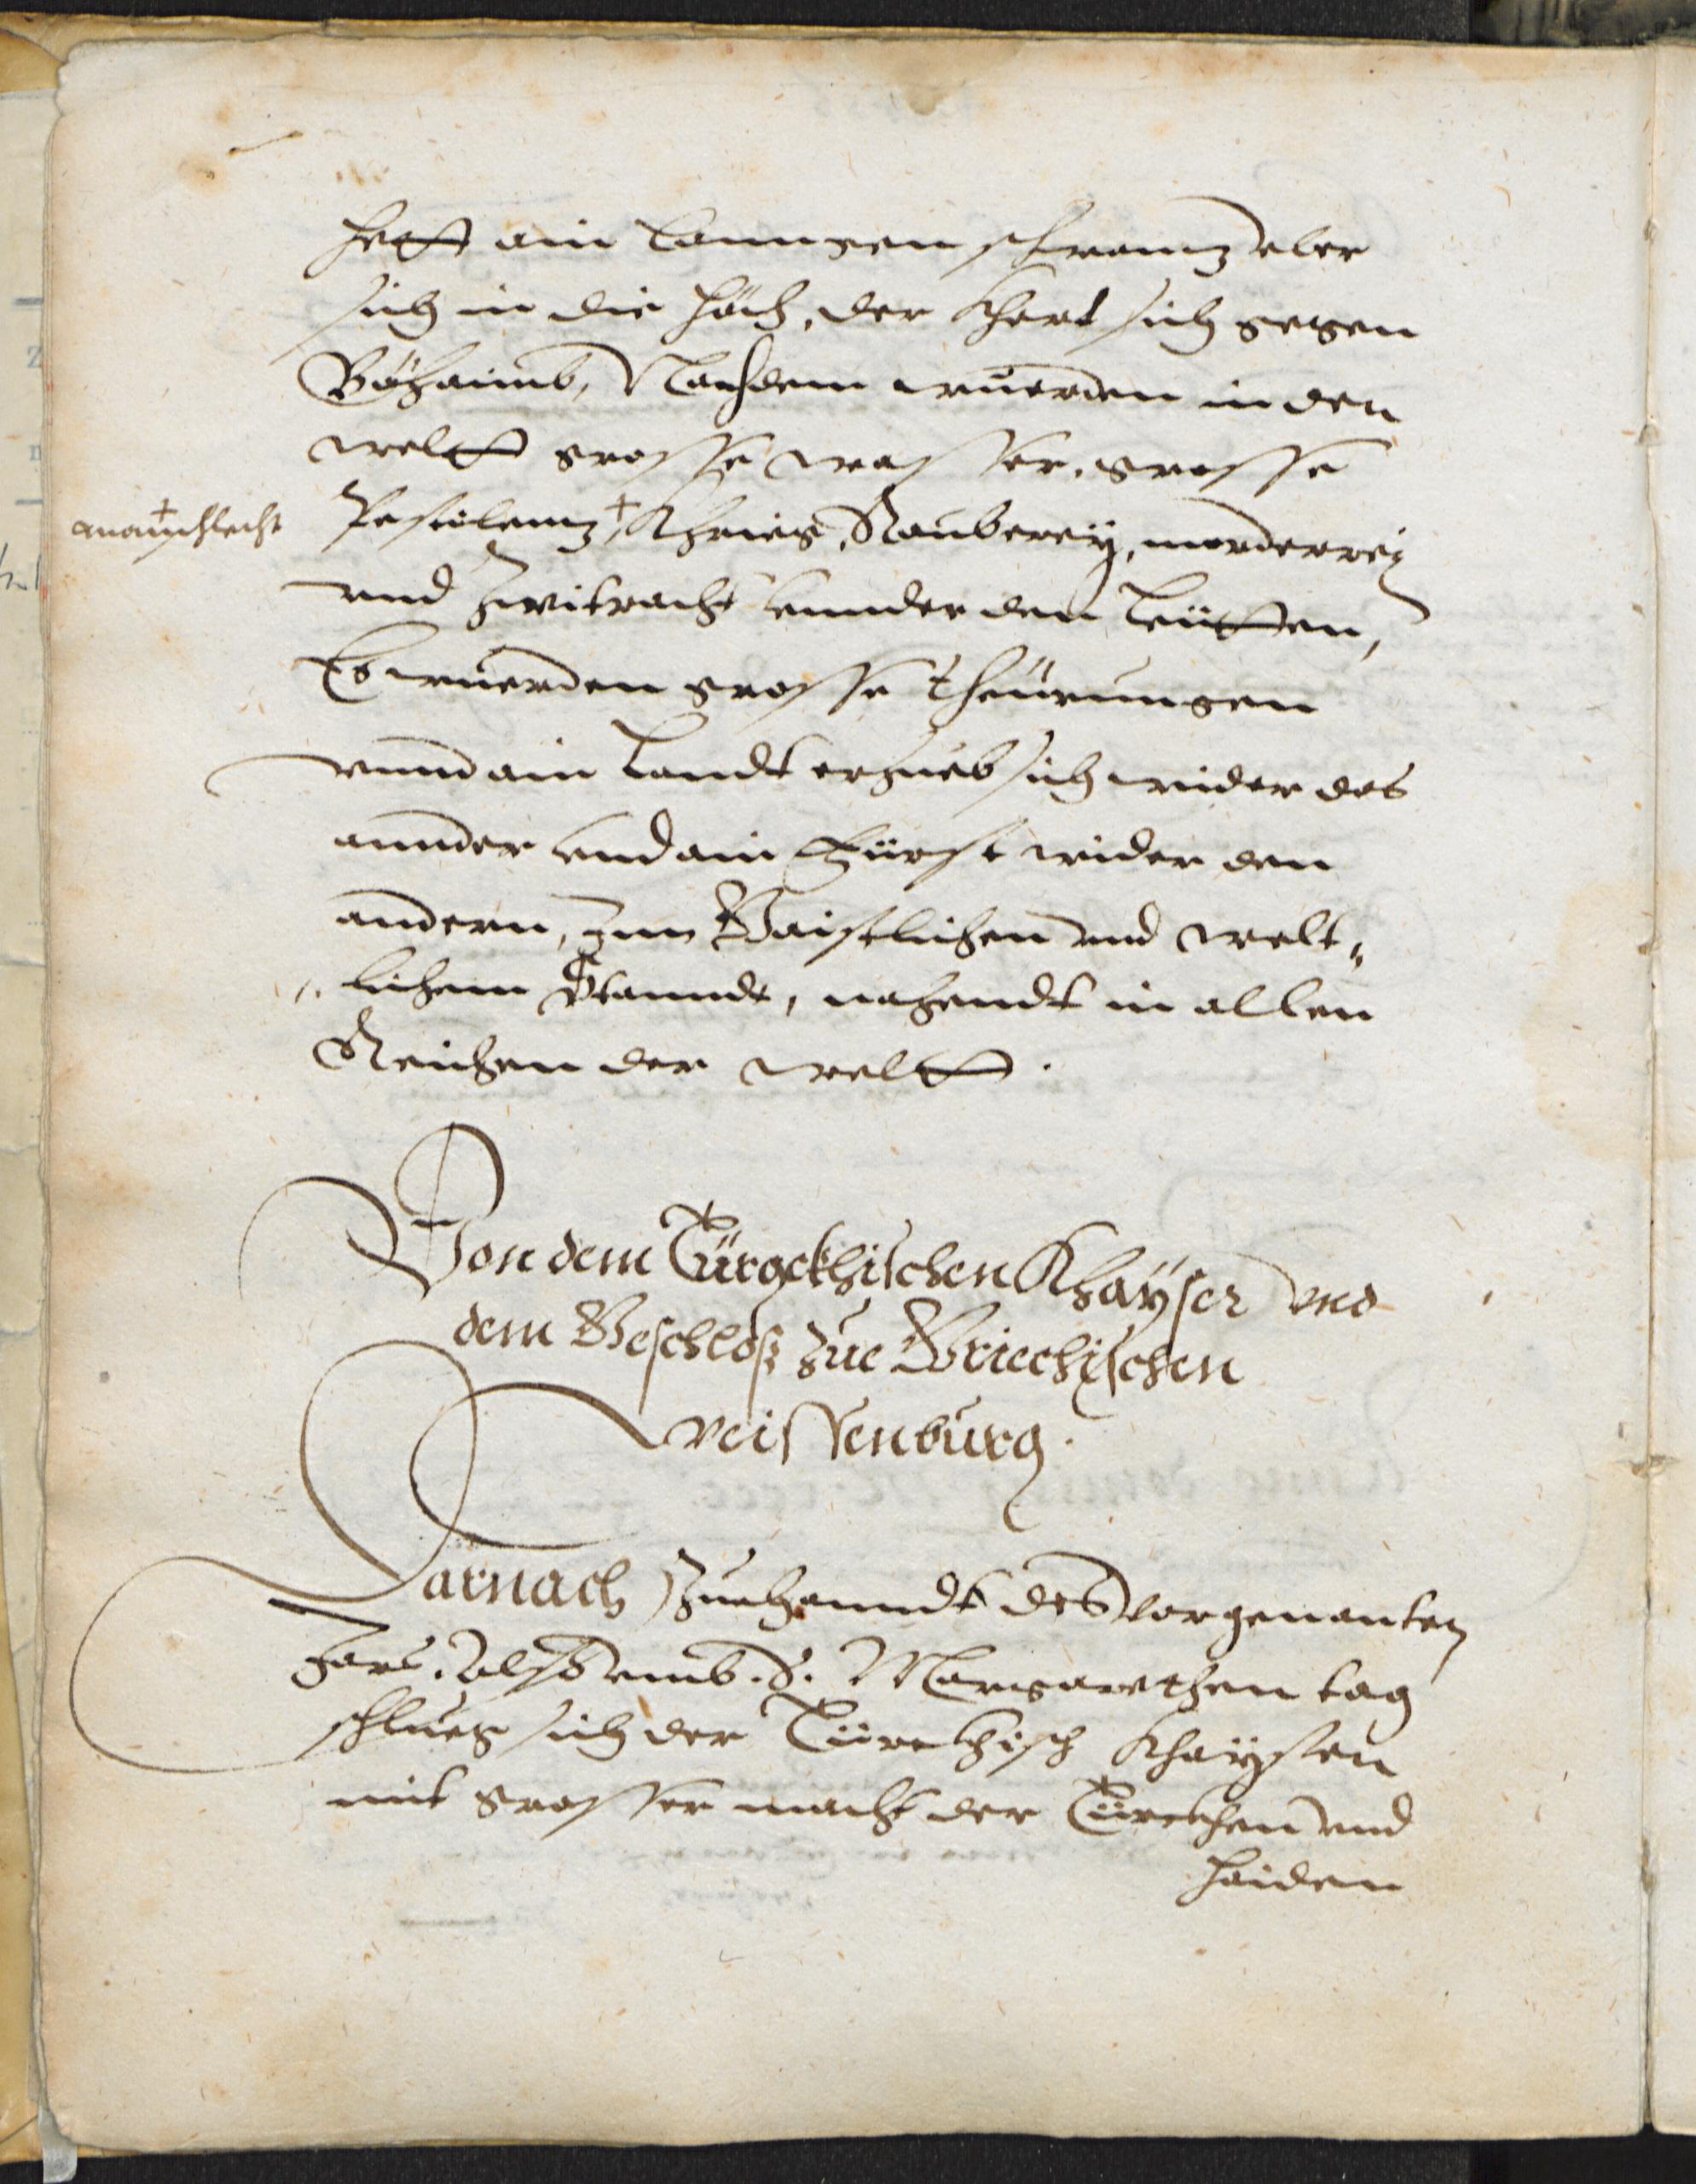 hett ain Lanngen schwanntz vber
sich in die höch, der khert sich gegen
Böhaimb, Nachdem wuerden in der
welltt grosse wasser, grosse
Pestilenntz,+ Khrieg, Rauberey, morderey
+ manschlecht
vnd Zwitracht vnnder den Leütten,
Es wuerden grosse theürungen
vnnd ain Landt erhueb sich wider das
annder vnd ain Fürst wider den
andern, Inn Gaistlichen vnd welt„
„lichem Stanndt, nahendt in allen
Reichen der welltt.
Von dem Türgckhischen Khayser vnd
dem Geschloß zue Griechischen
Weissenburg.
Darnach Zuehanndt des vorgenanten
Jars, Alß vmb S. Margarethen tag
schlueg sich der Türckhisch Khayser
mit grosser macht der Türckhen vnd
haiden